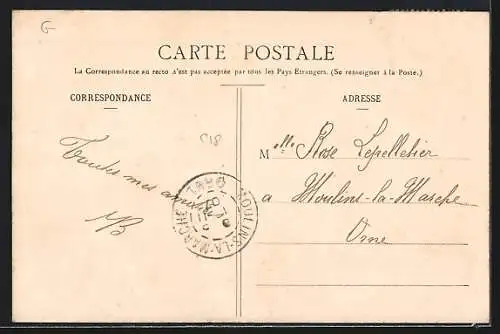 G
CARTE POSTALE
La Correspondance au recto n'est pas acceptée par tous les Pays Etrangers. (Se renseigner à la Poste.)
CORRESPONDANCE
ADRESSE
C18
Toutes mes amitiés
MB
Melle Rose Lepelletier
à Moulins-la-Marche
Orne
MOULINS-LA-MARCHE